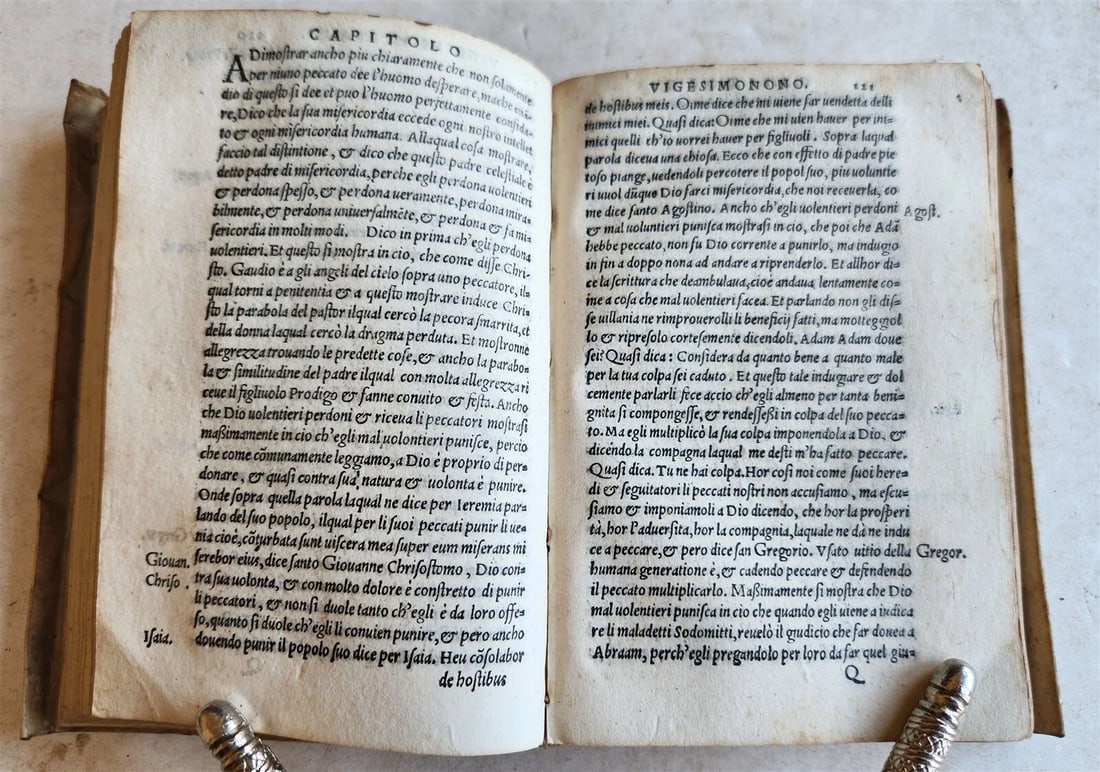 CAPITOLO
A Dimostrar ancho piu chiaramente che non solamente
per niuno peccato dee l'huomo desperare, ma che etiā
dio di questo si dee et puo l'huomo perfettamente confida-
re, Dico che la sua misericordia eccede ogni nostro intellet
to & ogni misericordia humana. Allaqual cosa mostrare,
faccio tal distintione, & dico che questo padre celestiale è
detto padre di misericordia, perche egli perdona uolentieri
& perdona spesso, & perdona ueramente, perdona mira-
bilmente, & perdona uniuersalmēte, & perdona & fa mi-
sericordia in molti modi. Dico in prima ch'egli perdona
uolentieri. Et questo si mostra in cio, che come disse Chri-
sto. Gaudio è a gli angeli del cielo sopra uno peccatore, il-
qual torni a penitentia & a questo mostrare induce Chri-
sto la parabola del pastor ilqual cercò la pecora smarrita, et
della donna laqual cercò la dragma perduta. Et mostronne
allegrezza trouando le predette cose, & ancho la parabo-
la & similitudine del padre ilqual con molta allegrezza ri
ceue il figliuolo Prodigo & fanne conuito & festa. Ancho
che Dio uolentieri perdoni & riceua li peccatori mostrasi
maßimamente in cio ch'egli mal uolontieri punisce, percio
che come cōmunamente leggiamo, a Dio è proprio di per-
donare, & quasi contra sua natura & uolonta è punire.
Onde sopra quella parola laqual ne dice per Ieremia par-
lando del suo popolo, ilqual per li suoi peccati punir li ue-
nia cioè, cōturbata sunt uiscera mea super eum miserans mi
Giouan. Chriso. serebor eius, dice santo Giouanne Chrisostomo, Dio con-
tra sua uolonta, & con molto dolore è constretto di punir
li peccatori, & non si duole tanto ch'egli è da loro offe-
so, quanto si duole ch'egli li conuien punire, & pero ancho
Isaia. douendo punir il popolo suo dice per Isaia. Heu cōsolabor
de hostibus
VIGESIMONONO. 121
de hostibus meis. Oime dice che mi uiene far uendetta delli
inimici miei. Quasi dica: Oime che mi uien hauer per ini-
mici quelli ch'io uorrei hauer per figliuoli. Sopra laqual
parola diceua una chiosa. Ecco che con effetto di padre pie
toso piange, uedendoli percotere il popol suo, piu uoluntie
ri uuol dūque Dio farci misericordia, che noi receuerla, co
me dice santo Agostino. Ancho ch'egli uolentieri perdoni Agost.
& mal uoluntieri punisca mostrasi in cio, che poi che Adā
hebbe peccato, non fu Dio corrente a punirlo, ma indugio
in fin a doppo nona ad andare a riprenderlo. Et allhor di-
ce la scrittura che deambulaua, cioè andaua lentamente co-
me a cosa che mal uolentieri facea. Et parlando non gli dis-
se uillania ne rimprouerolli li beneficij fatti, ma motteggiol
lo & ripresolo cortesemente dicendoli, Adam Adam doue
sei? Quasi dica: Considera da quanto bene a quanto male
per la tua colpa sei caduto. Et questo tale indugiare & dol
cemente parlarli fece accio ch'egli almeno per tanta beni-
gnita si compongesse, & rendesseßi in colpa del suo pecca-
to. Ma egli multiplicò la sua colpa imponendola a Dio, &
dicēdo la compagna laqual me desti m'ha fatto peccare.
Quasi dica. Tu ne hai colpa. Hor cosi noi come suoi here-
di & seguitatori li peccati nostri non accusiamo, ma escu-
siamo & imponiamoli a Dio dicendo, che hor la prosperi
tà, hor l'aduersita, hor la compagnia, laquale ne dà ne indu
ce a peccare, & pero dice san Gregorio. Vsato uitio della Gregor.
humana generatione è, & cadendo peccare & defendendo
il peccato multiplicarlo. Maßimamente si mostra che Dio
mal uolentieri punisca in cio che quando egli uiene a iudica
re li maladetti Sodomitti, reuelò il giudicio che far douea a
Abraam, perch'egli pregandolo per loro da far quel giu-
Q